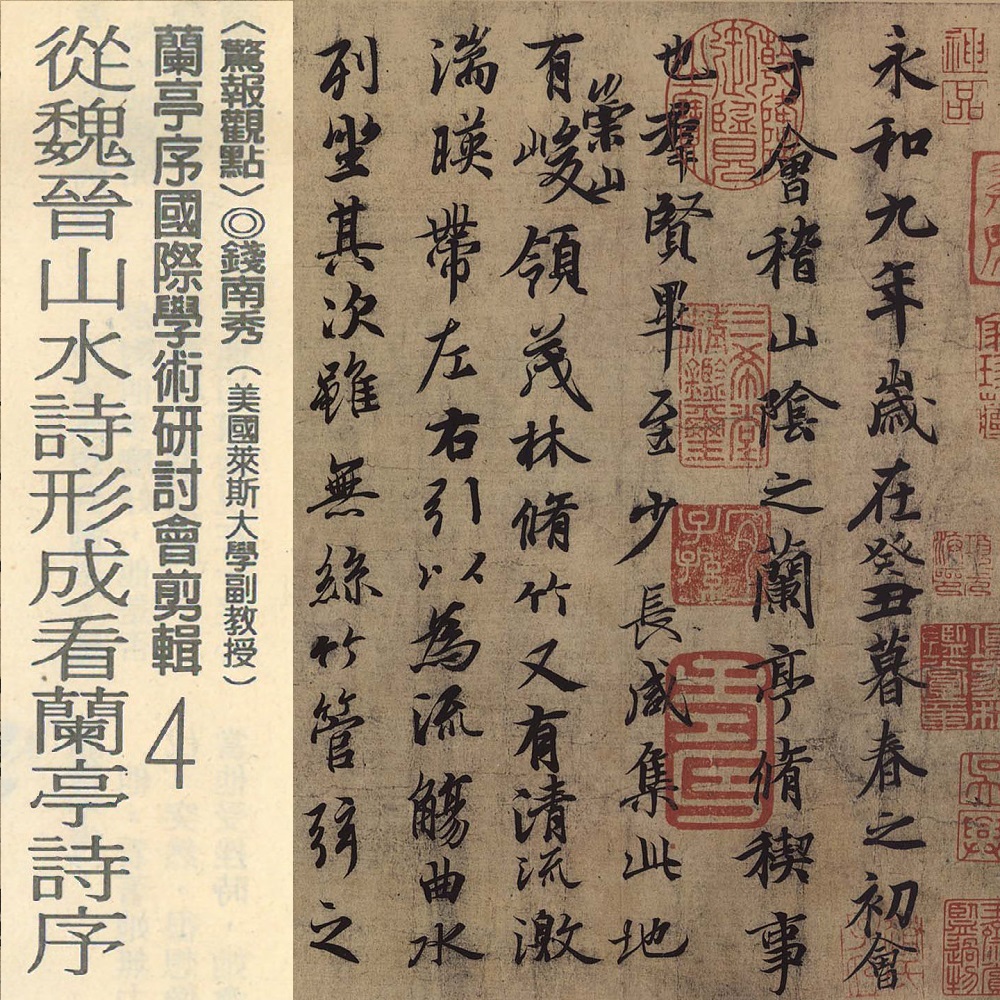 永和九年歲在癸丑暮春之初會
于會稽山陰之蘭亭脩稧事
也羣賢畢至少長咸集此地
有崇山峻領茂林脩竹又有清流激
湍暎帶左右引以為流觴曲水
列坐其次雖無絲竹管弦之
〈驚報觀點〉◎錢南秀（美國萊斯大學副教授）
蘭亭序國際學術研討會剪輯 4
從魏晉山水詩形成看蘭亭詩序
神品
三希堂精鑑璽
宜子孫